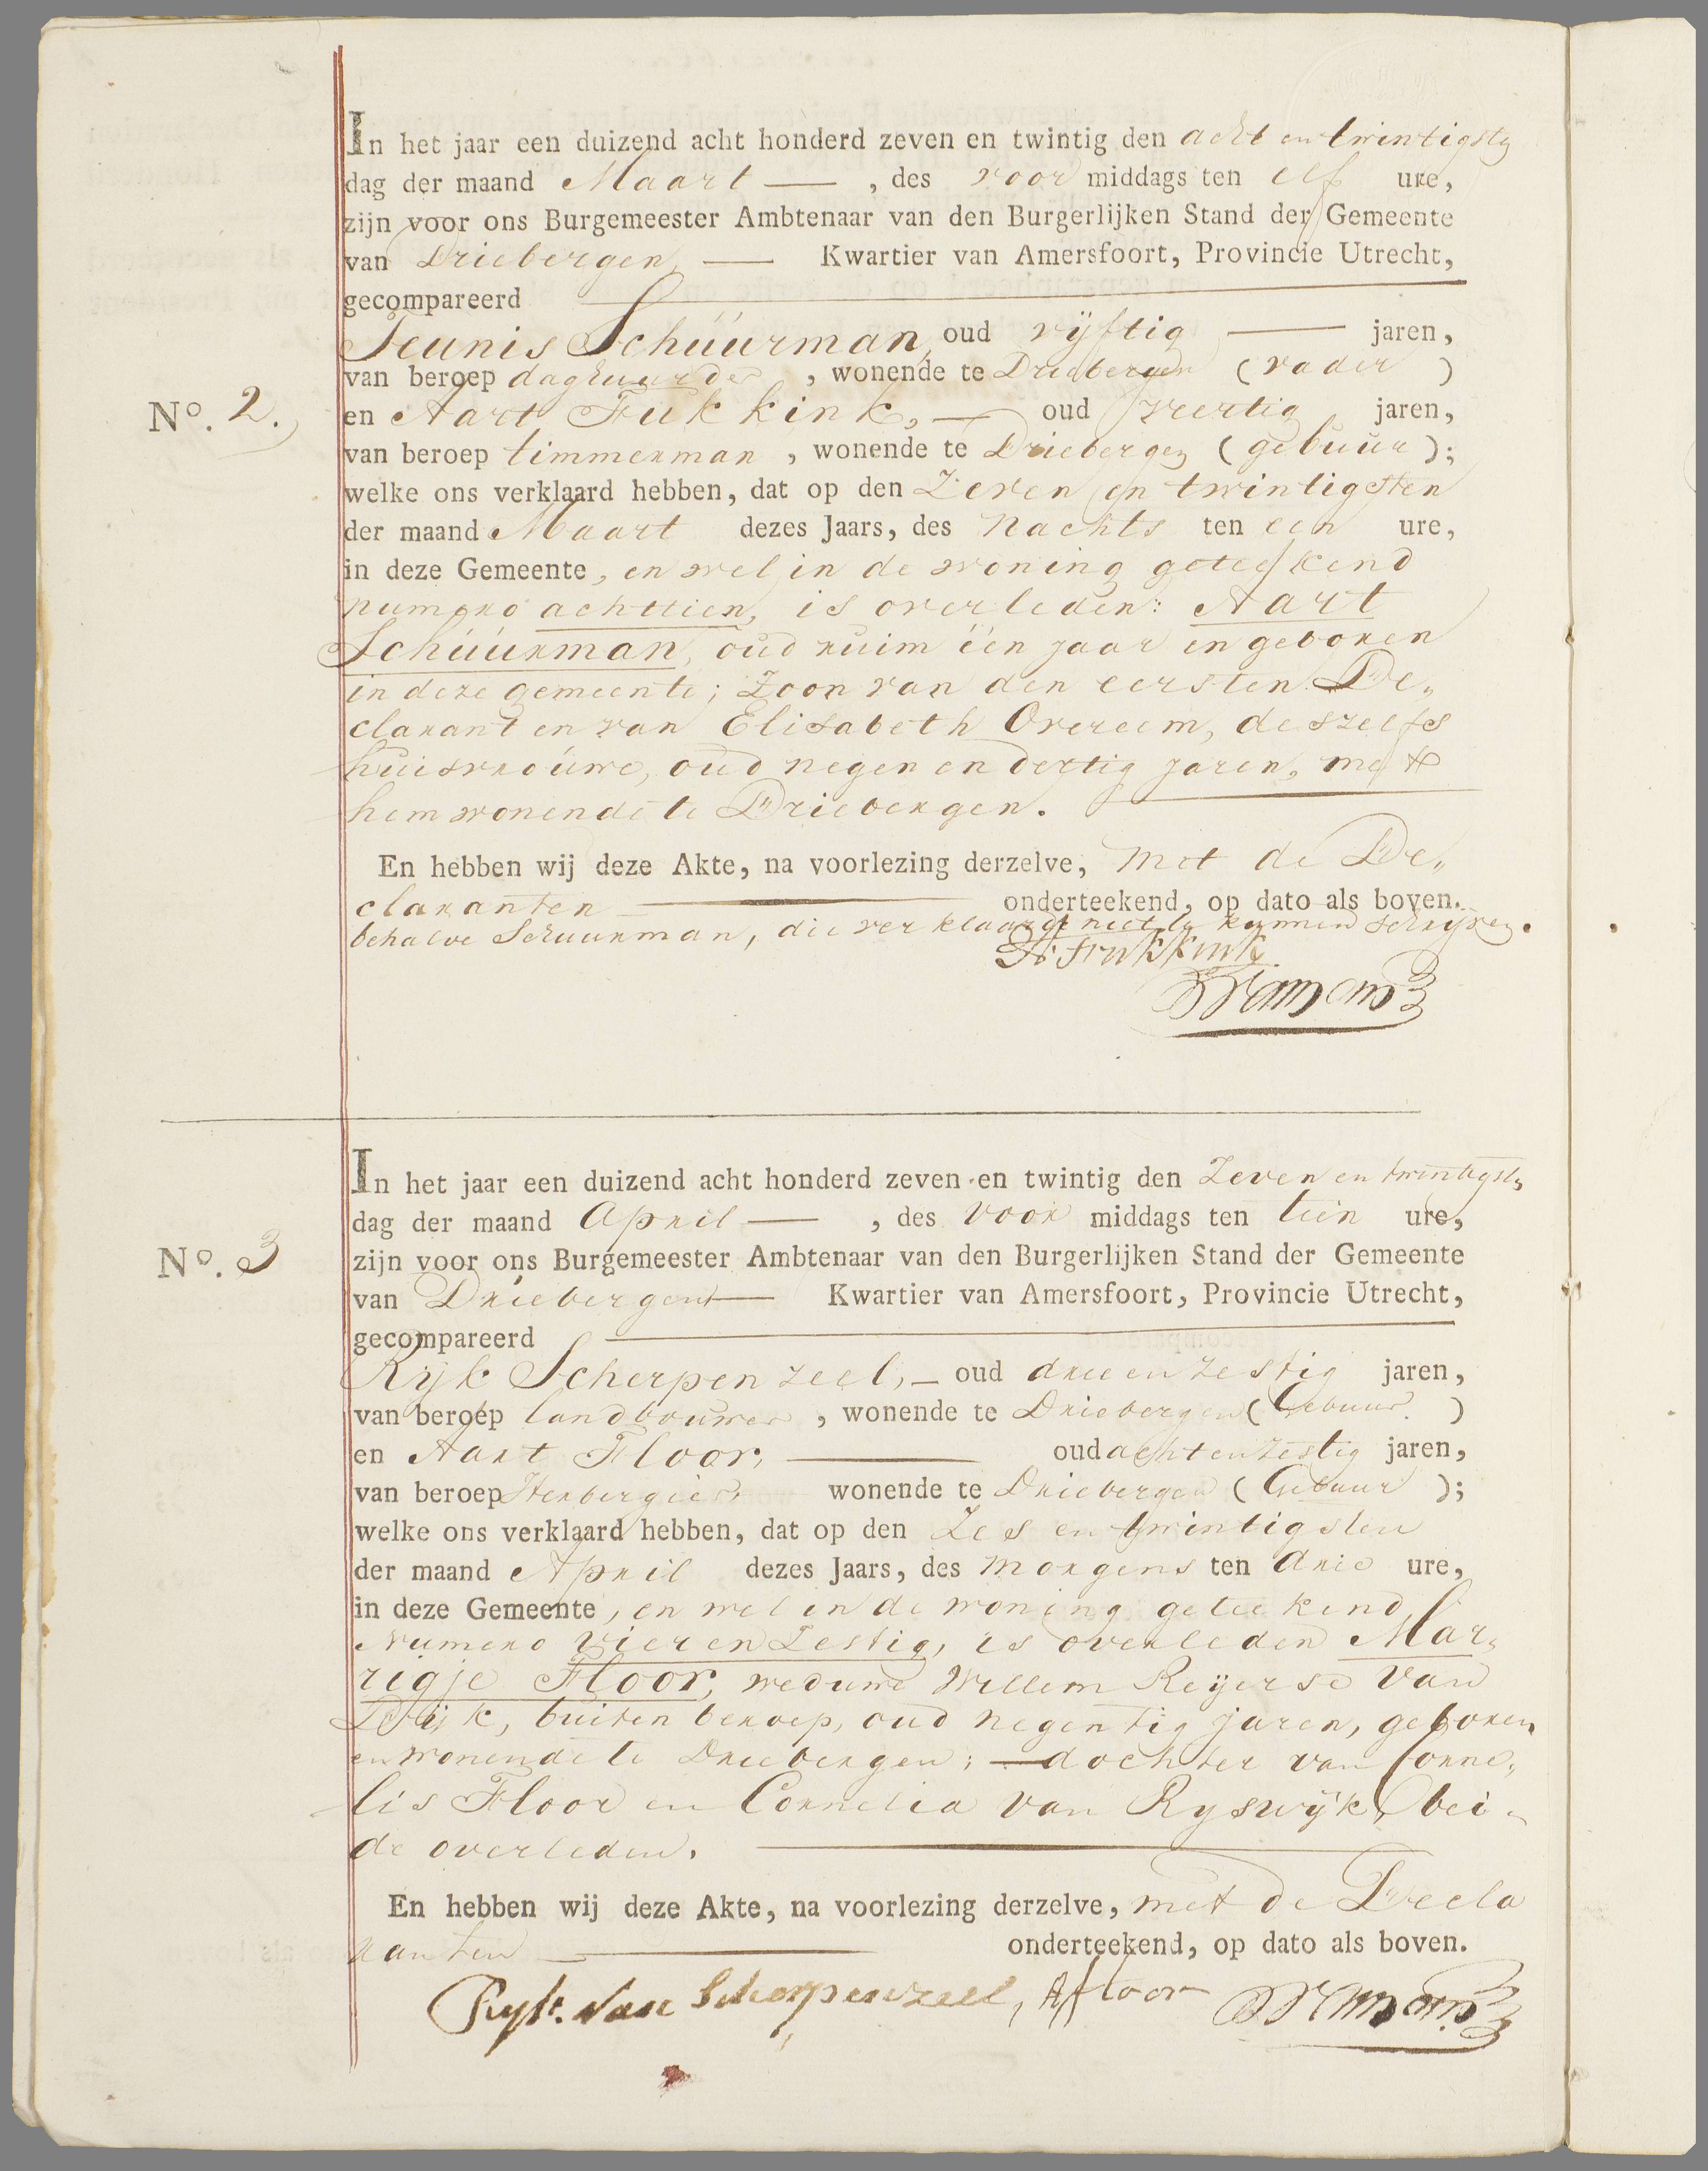 In het jaar een duizend acht honderd zeven en twintig den acht en twintigste
dag der maand Maart — , des voor middags ten elf ure,
zijn voor ons Burgemeester Ambtenaar van den Burgerlijken Stand der Gemeente
van Driebergen — Kwartier van Amersfoort, Provincie Utrecht,
gecompareerd
Teunis Schúúrman, oud vijftig — jaren,
van beroep daghuurder , wonende te Driebergen (vader)
No. 2.
en Aart Fukkink, — oud veertig jaren,
van beroep timmerman , wonende te Driebergen (gebuur);
welke ons verklaard hebben, dat op den Zeven en twintigsten
der maand Maart dezes Jaars, des nachts ten een ure,
in deze Gemeente, en wel in de woning geteekend
numero achttien, is overleden: Aart
Schúúrman, oud ruim één jaar en geboren
in deze gemeente; Zoon van den eersten De„
clarant en van Elisabeth Overeem, deszelfs
huisvroúwe, oud negen en dertig jaren, met
hem wonende te Driebergen.
En hebben wij deze Akte, na voorlezing derzelve, met de De„
claranten — onderteekend, op dato als boven.
behalve Schuurman, die verklaarde niet te kunnen schrijven.
A. Fukkink
In het jaar een duizend acht honderd zeven en twintig den Zeven en twintigste
dag der maand April — , des voor middags ten tien ure,
No. 3
zijn voor ons Burgemeester Ambtenaar van den Burgerlijken Stand der Gemeente
van Driebergen — Kwartier van Amersfoort, Provincie Utrecht,
gecompareerd
Rijk Scherpenzeel, — oud drie en zestig jaren,
van beroep landbouwer , wonende te Driebergen (Gebuur)
en Aart Floor, — oud acht en zestig jaren,
van beroep Herbergier, wonende te Driebergen (Gebuur);
welke ons verklaard hebben, dat op den Zes en twintigsten
der maand April dezes Jaars, des morgens ten drie ure,
in deze Gemeente, en wel in de woning geteekend,
Numero vier en Zestig, is overleden Mar„
rigje Floor, weduwe Willem Reijerse van
Dijk, buiten beroep, oud negentig jaren, geboren
en wonende te Driebergen; — dochter van Corne„
lis Floor en Cornelia van Ryswijk, bei„
de overleden.
En hebben wij deze Akte, na voorlezing derzelve, met de Decla
ranten — onderteekend, op dato als boven.
Ryk. van Scherpenzeel, A Floor